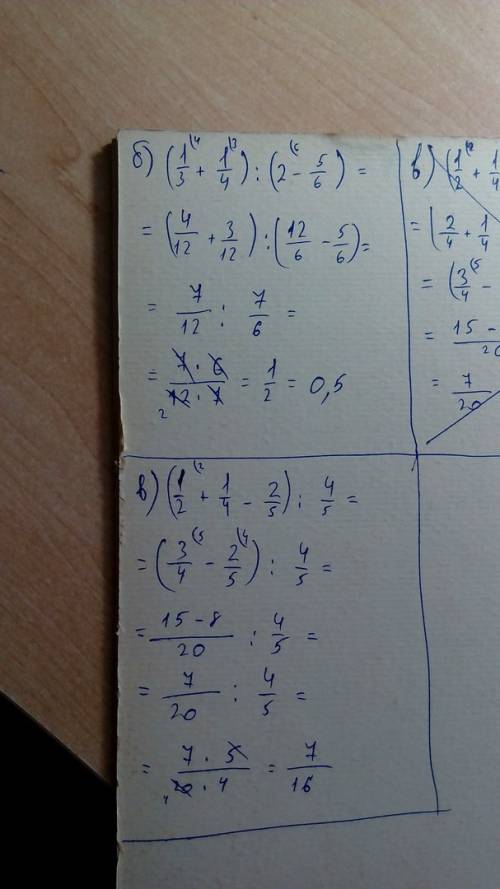 б) (1/3 (4 + 1/4 (3) : (2 (6 - 5/6) =
= (4/12 + 3/12) : (12/6 - 5/6) =
= 7/12 : 7/6 =
= 7 · 6 / 12 · 7 2 = 1/2 = 0,5
в) (1/2 (2 + 1/4
= (2/4 + 1/4
= (3/4 (5 -
= 15 - / 20
= 7/20
в) (1/2 (2 + 1/4 - 2/5) : 4/5 =
= (3/4 (5 - 2/5 (4) : 4/5 =
= 15 - 8 / 20 : 4/5 =
= 7/20 : 4/5 =
= 7 · 5 / 20 · 4 4 = 7/16